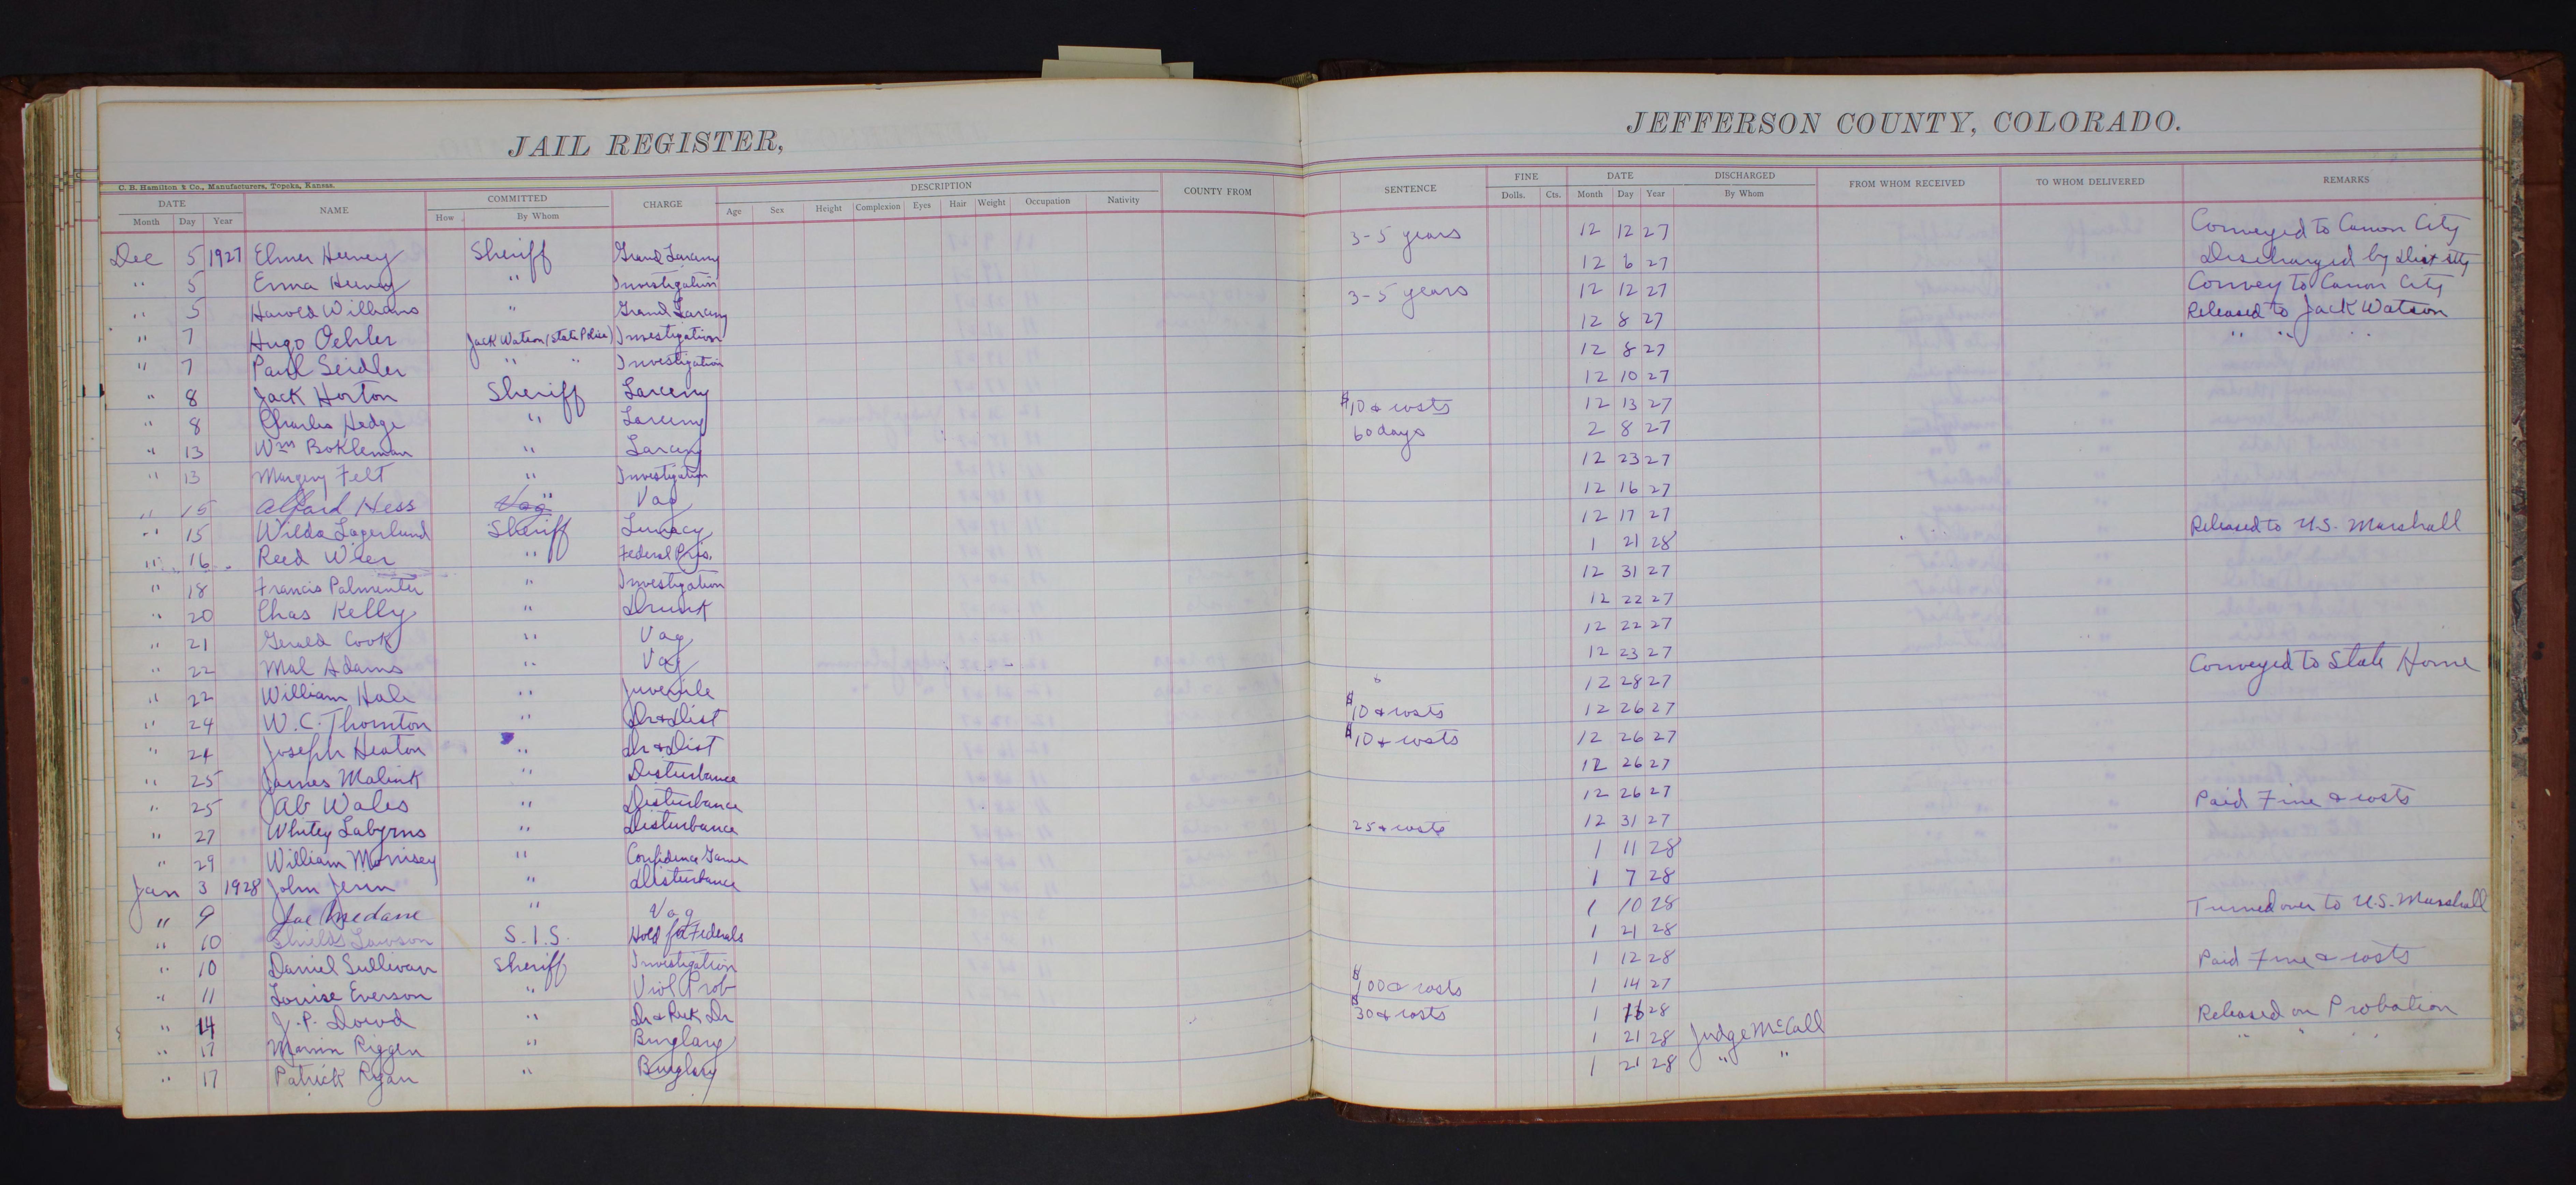 JAIL REGISTER,
JEFFERSON COUNTY, COLORADO.
C. B. Hamilton & Co., Manufacturers, Topeka, Kansas.
DATE NAME COMMITTED CHARGE DESCRIPTION COUNTY FROM SENTENCE FINE DATE DISCHARGED FROM WHOM RECEIVED TO WHOM DELIVERED REMARKS
Month Day Year How By Whom Age Sex Height Complexion Eyes Hair Weight Occupation Nativity Dolls. Cts. Month Day Year By Whom
Dec 5 1927 Elmer Heeney Sheriff Grand Larceny 3-5 years 12 12 27 Conveyed to Canon City
" 5 Erma Heeney " Investigation 12 6 27 Discharged by Dist Atty
" 5 Harold Williams " Grand Larceny 3-5 years 12 12 27 Convey to Canon City
" 7 Hugo Oehler Jack Watson (State Police) Investigation 12 8 27 Released to Jack Watson
" 7 Paul Seidler " " Investigation 12 8 27 " " "
" 8 Jack Horton Sheriff Larceny 12 10 27
" 8 Charles Hedge " Larceny $10 & costs 12 13 27
" 13 Wm Bokleman " Larceny 60 days 2 8 27
" 13 Margery Felt " Investigation 12 23 27
" 15 Alfard Hess Vag " Vag 12 16 27
" 15 Wilda Lagerlund Sheriff Lunacy 12 17 27
" 16 Reed Wier " Federal Pris. 1 21 28 Released to U.S. Marshall
" 18 Francis Palmenter " Investigation 12 31 27
" 20 Chas Kelly " Drunk 12 22 27
" 21 Gerald Cook " Vag 12 22 27
" 22 Mal Adams " Vag 12 23 27
" 22 William Hale " Juvenile 12 28 27 Conveyed to State Home
" 24 W.C. Thornton " Dr & Dist $10 & costs 12 26 27
" 24 Joseph Heaton " Dr & Dist $10 & costs 12 26 27
" 25 James Malink " Disturbance 12 26 27
" 25 Ab Wales " Disturbance 12 26 27
" 27 Whitey Labyrns " Disturbance 25 & costs 12 31 27 Paid Fine & costs
" 29 William Morrisey " Confidence Game 1 11 28
Jan 3 1928 John Jenn " Disturbance 1 7 28
" 9 Joe " Vag 1 10 28
" 10 Shields Lawson S.I.S. Hold for Federals 1 21 28 Turned over to U.S. Marshall
" 10 Daniel Sullivan Sheriff Investigation 1 12 28
" 11 Louise Everson " Viol Prob $100 & costs 1 14 27 Paid Fine & costs
" 14 J.P. Dowd " Dr & Reck Dr $30 & costs 1 16 28
" 17 Marvin Riggen " Burglary 1 21 28 Judge McCall Released on Probation
" 17 Patrick Ryan " Burglary 1 21 28 " " " " "